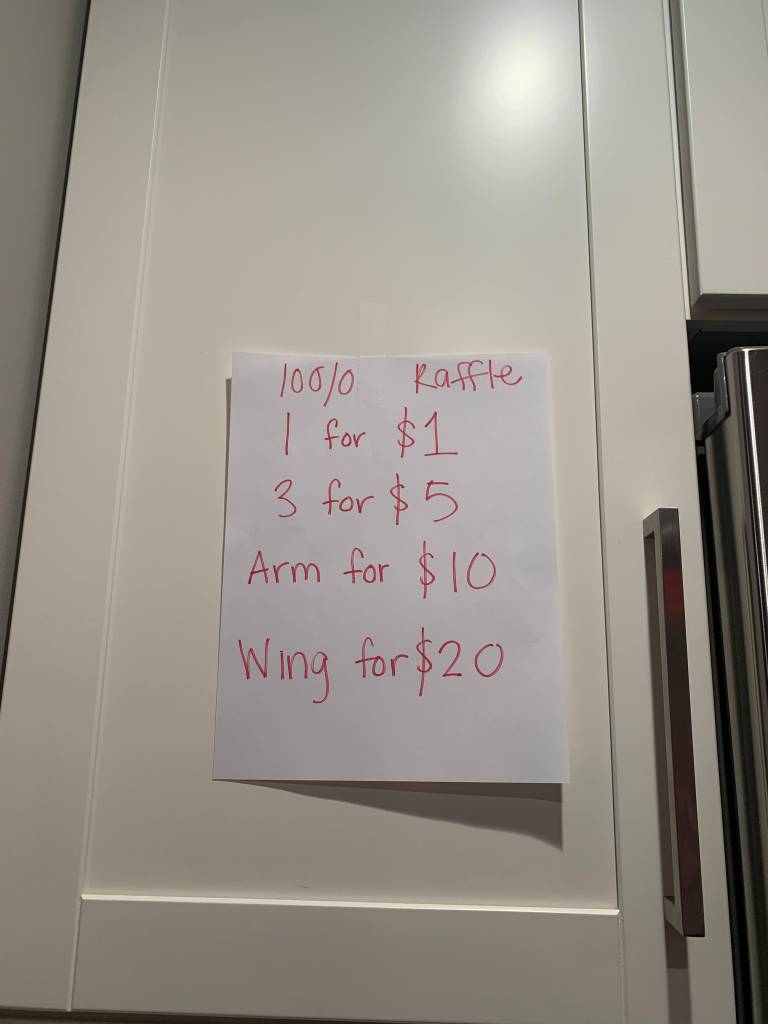 100/0 Raffle
1 for $1
3 for $5
Arm for $10
Wing for $20